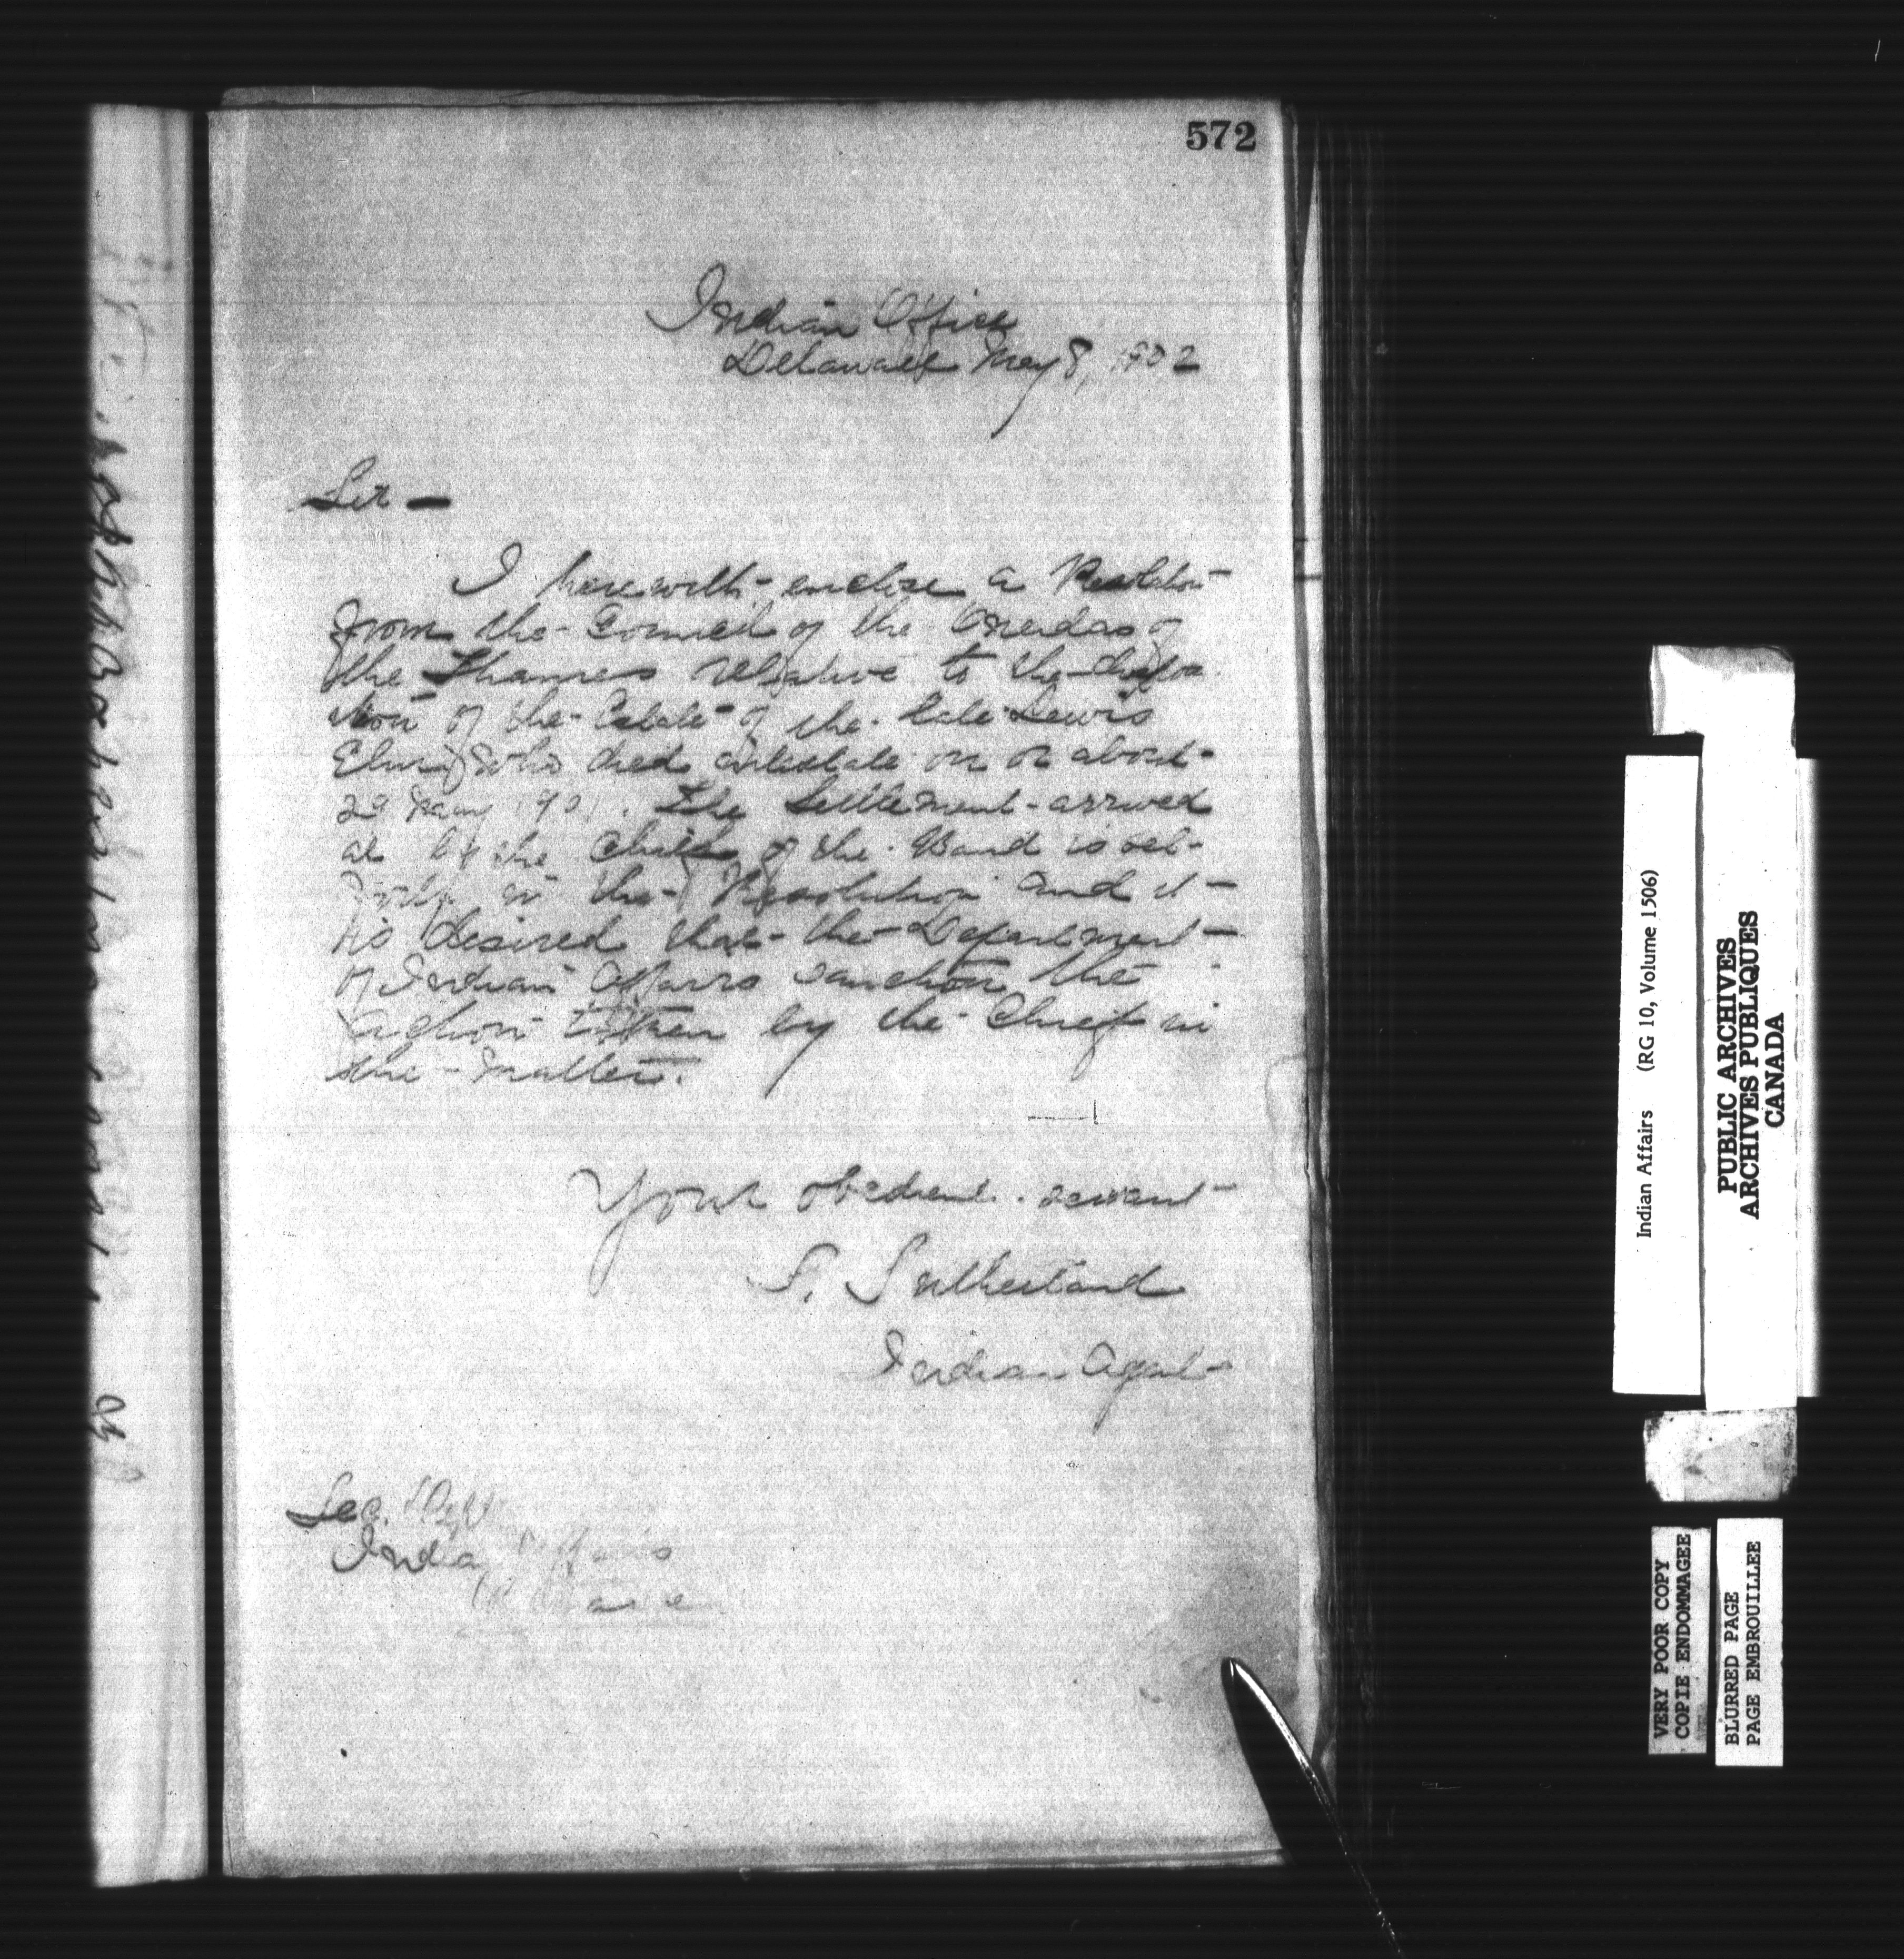 572
Indian Office
Delaware May 8, 1902
Sir —
I herewith enclose a Resolution
from the Council of the Oneidas of
the Thames relative to the
of the Estate of the late Lewis
Elm who died intestate on or about
1901. The settlement arrived
at by the Chiefs of the Band is set
in the Resolution and it
is desired that the Department
of Indian Affairs sanction the
action taken by the Chiefs in
the matter.
Your obedient servant
S. Sutherland
Indian Agent
Sec. Dept
Indian Affairs
Indian Affairs (RG 10, Volume 1506)
PUBLIC ARCHIVES
ARCHIVES PUBLIQUES
CANADA
VERY POOR COPY
COPIE ENDOMMAGEE
BLURRED PAGE
PAGE EMBROUILLEE